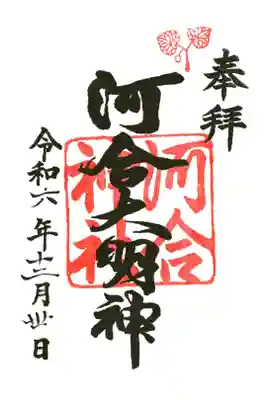 奉拝
河合大明神
河合
神社
令和六年十二月卅日